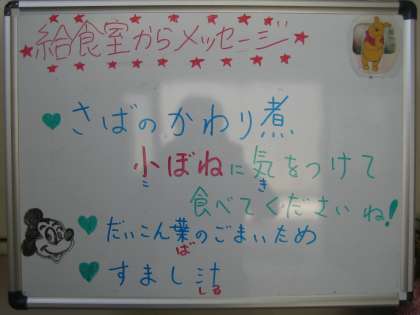 給食室からメッセージ
さばのかわり煮
小ぼねに気をつけて
こ き
食べてくださいね!
だいこん葉のごまいため
ば
すまし汁
しる